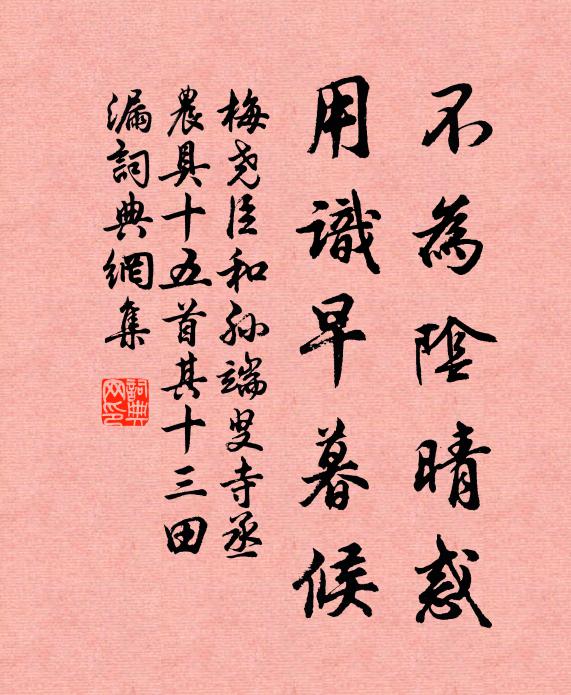 不為陰晴惑
用識早暮候
梅尧臣和孙端叟寺丞
農具十五首其十三田
漏詞典網集
詞典
网印